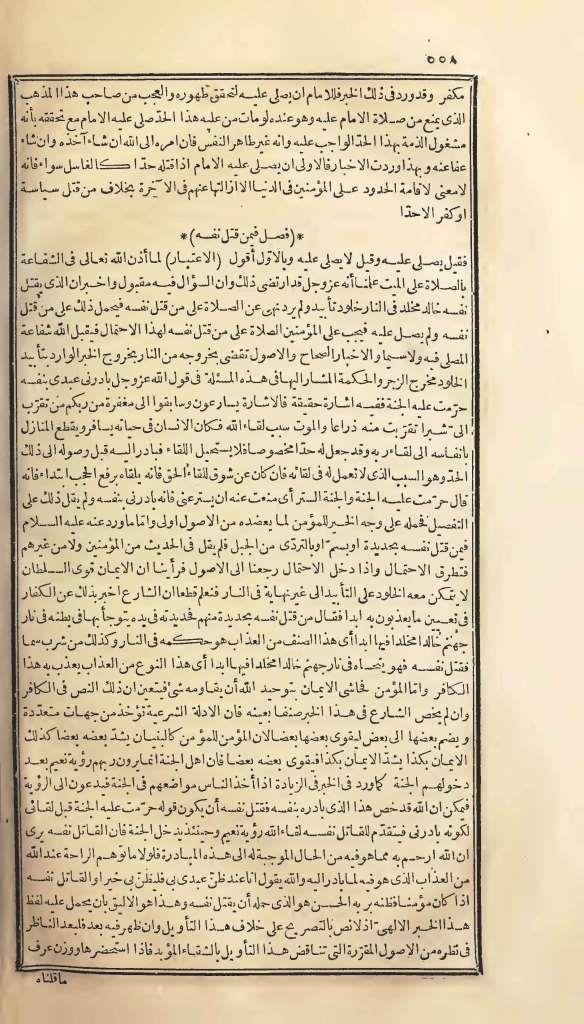 ٥٥٨
مكفر وقد ورد في ذلك الخبر فللامام ان يصلى عليه لتحقق طهوره والعجب من صاحب هذا المذهب
الذى يمنع من صلاة الامام عليه وهو عنده لومات من عليه هذا الحد صلى عليه الامام مع تحققه بأنه
مشغول الذمة بهذا الحد الواجب عليه وانه غير طاهر النفس فان امره الى الله ان شاء آخذه وان شاء
عفا عنه وبهذا وردت الاخبار فالاولى ان يصلى عليه الامام اذا قتله حدا كالغاسل سواء فانه
لا معنى لاقامة الحدود على المؤمنين فى الدنيا الا ازالتها عنهم فى الآخرة بخلاف من قتل سياسة
او كفر الاحدا
*(فصل فيمن قتل نفسه)*
فقيل يصلى عليه وقيل لا يصلى عليه وبالاول أقول (الاعتبار) لما أذن الله تعالى فى الشفاعة
بالصلاة على الميت علمنا أنه عز وجل قد ارتضى ذلك وان السؤال فيه مقبول واخبر ان الذى يقتل
نفسه خالد مخلد فى النار خلود تأبيد ولم يرد نهى عن الصلاة على من قتل نفسه فيحمل ذلك على من قتل
نفسه ولم يصل عليه فيجب على المؤمنين الصلاة على من قتل نفسه لهذا الاحتمال فيقبل الله شفاعة
المصلى فيه ولا سيما والاخبار الصحاح والاصول تقضى بخروجه من النار بخروج الخبر الوارد بتأبيد
الخلود مخرج الزجر والحكمة المشار اليها فى هذه المسئلة فى قول الله عز وجل بادرنى عبدى بنفسه
حرّمت عليه الجنة ففيه اشارة حقيقة فالاشارة يسارعون وسابقوا الى مغفرة من ربكم من تقرّب
الىّ شبرا تقرّبت منه ذراعا والموت سبب لقاء الله فكان الانسان فى حياته يسافر ويقطع المنازل
بانفاسه الى لقاء ربه وقد جعل له حدا مخصوصا فلا يستعجل اللقاء فبادر اليه قبل وصوله الى ذلك
الحد وهو السبب الذى لا تعمل له فى لقائه فان كان عن شوق للقاء الحق فانه يلقاه برفع الحجب ابتداء فانه
قال حرّمت عليه الجنة والجنة الستر أى منعت عنه ان يستر عنى فانه بادرنى بنفسه ولم يقل ذلك على
التفصيل فحمله على وجه الخبر للمؤمن لما يعضده من الاصول اولى واما ما ورد عنه عليه السلام
فيمن قتل نفسه بحديدة او بسم او بالتردّى من الجبل فلم يقل فى الحديث من المؤمنين ولا من غيرهم
فتطرق الاحتمال واذا دخل الاحتمال رجعنا الى الاصول فرأينا ان الايمان قوى السلطان
لا يتمكن معه الخلود على التأبيد الى غير نهاية فى النار فنعلم قطعا ان الشارع اخبر بذلك عن الكفار
فى تعيين ما يعذبون به ابدا فقال من قتل نفسه بحديدة منهم فحديدته فى يده يتوجأ بها فى بطنه فى نار
جهنم خالدا مخلدا فيها ابدا أى هذا الصنف من العذاب هو حكمه فى النار وكذلك من شرب سما
فقتل نفسه فهو يتحساه فى نار جهنم خالدا مخلدا فيها ابدا أى هذا النوع من العذاب يعذب به هذا
الكافر واما المؤمن فحاشى الايمان بتوحيد الله أن يقاومه شئ فيتعين ان ذلك النص فى الكافر
وان لم يخص الشارع فى هذا الخبر صنفا بعينه فان الادلة الشرعية تؤخذ من جهات متعدّدة
ويضم بعضها الى بعض ليقوى بعضها بعضا لان المؤمن للمؤمن كالبنيان يشدّ بعضه بعضا كذلك
الايمان بكذا يشدّ الايمان بكذا فيقوى بعضه بعضا فان اهل الجنة انما يرون ربهم رؤية نعيم بعد
دخولهم الجنة كما ورد فى الخبر فى الزيادة اذا أخذ الناس مواضعهم فى الجنة فيدعون الى الرؤية
فيمكن ان الله قد خص هذا الذى بادره بنفسه فقتل نفسه أن يكون قوله حرّمت عليه الجنة قبل لقائى
لكونه بادرنى فيتقدّم للقاتل نفسه لقاء الله رؤية نعيم وحينئذ يدخل الجنة فان القاتل نفسه يرى
ان الله ارحم به مما هو فيه من الحال الموجبة له الى هذه المبادرة فلولا ما توهم الراحة عند الله
من العذاب الذى هو فيه لما بادر اليه والله يقول انا عند ظنّ عبدى بى فليظنّ بى خيرا والقاتل نفسه
اذا كان مؤمنا فظنه بربه الحسن هو الذى حمله أن يقتل نفسه وهذا هو الاليق بان يحمل عليه لفظ
هذا الخبر الالهىّ اذ لا نص بالتصريح على خلاف هذا التأويل وان ظهر فيه بعد فلبعد الناظر
فى نظره من الاصول المقرّرة التى تناقض هذا التأويل بالشقاء المؤبد فاذا استحضرها ووزن عرف
ما قلناه